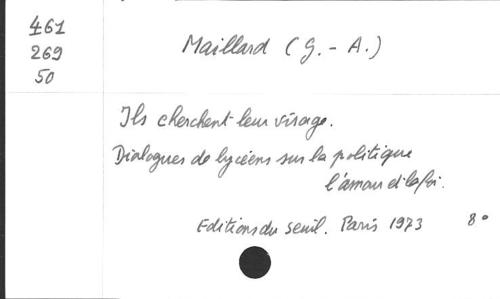 461
269
50
Maillard (G. - A.)
Ils cherchent leur visage.
Dialogues de lycéens sur la politique
l'amour et la foi.
Editions du seuil. Paris 1973 8°